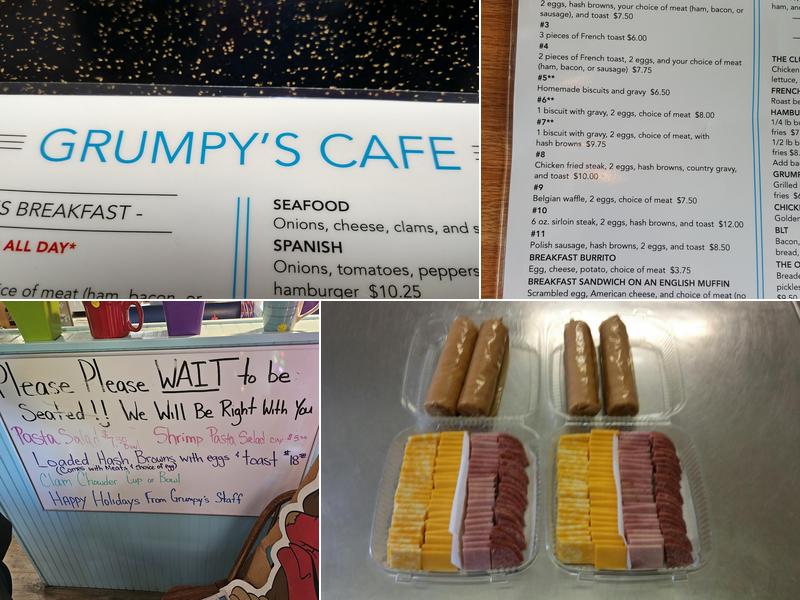 GRUMPY'S CAFE
S BREAKFAST -
ALL DAY*
ice of meat (ham, bacon, or
SEAFOOD
Onions, cheese, clams, and s
SPANISH
Onions, tomatoes, peppers
hamburger $10.25
2 eggs, hash browns, your choice of meat (ham, bacon, or
sausage), and toast $7.50
#3
3 pieces of French toast $6.00
#4
2 pieces of French toast, 2 eggs, and your choice of meat
(ham, bacon, or sausage) $7.75
#5**
Homemade biscuits and gravy $6.50
#6**
1 biscuit with gravy, 2 eggs, choice of meat $8.00
#7**
1 biscuit with gravy, 2 eggs, choice of meat, with
hash browns $9.75
#8
Chicken fried steak, 2 eggs, hash browns, country gravy,
and toast $10.00
#9
Belgian waffle, 2 eggs, choice of meat $7.50
#10
6 oz. sirloin steak, 2 eggs, hash browns, and toast $12.00
#11
Polish sausage, hash browns, 2 eggs, and toast $8.50
BREAKFAST BURRITO
Egg, cheese, potato, choice of meat $3.75
BREAKFAST SANDWICH ON AN ENGLISH MUFFIN
Scrambled egg, American cheese, and choice of meat (no
ham, an
THE CLU
Chicken
lettuce,
FRENCH
Roast be
HAMBU
1/4 lb b
fries $7
1/2 lb b
fries $8.
Add ba
GRUMP
Grilled
fries $6
CHICK
Golden
BLT
Bacon,
bread,
THE O
Breade
pickles
$9.50
Please Please WAIT to be
Seated!! We Will Be Right With You
Pasta Salad Bowl Shrimp Pasta Salad cup
Loaded Hash Browns with eggs & toast $18
(Comes with Meats & choice of egg)
Clam Chowder Cup or Bowl
Happy Holidays From Grumpy's Staff